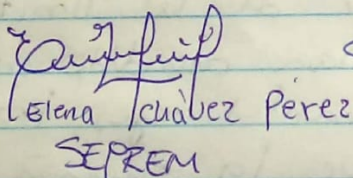 Elena Chávez Pérez
SEPREM